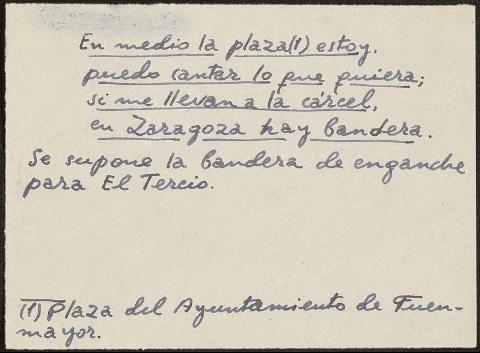 En medio la plaza(1) estoy.
puedo cantar lo que quiera;
si me llevan a la cárcel,
en Zaragoza hay bandera.
Se supone la bandera de enganche
para El Tercio.
(1) Plaza del Ayuntamiento de Fuen-
mayor.